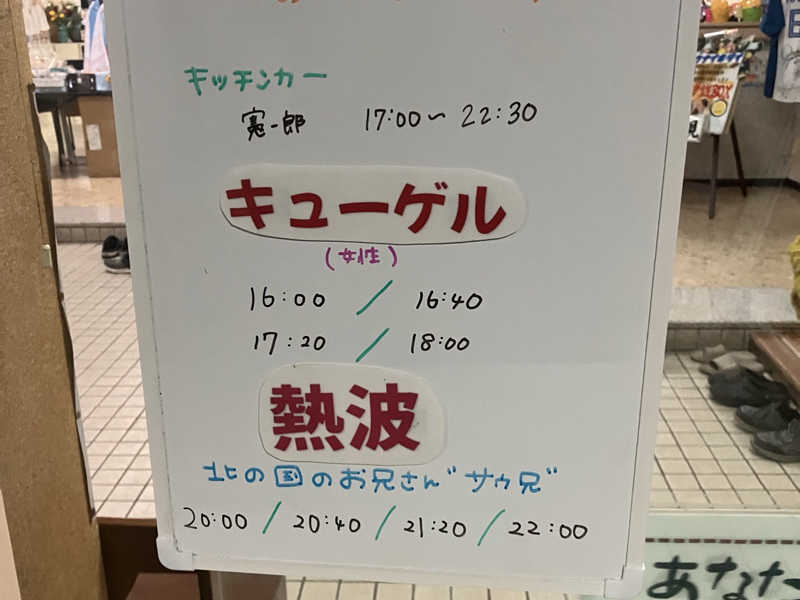 キッチンカー
憲一郎 17:00〜22:30
キューゲル
(女性)
16:00 / 16:40
17:20 / 18:00
熱波
北の国のお兄さん"サウ兄"
20:00 / 20:40 / 21:20 / 22:00
あなた